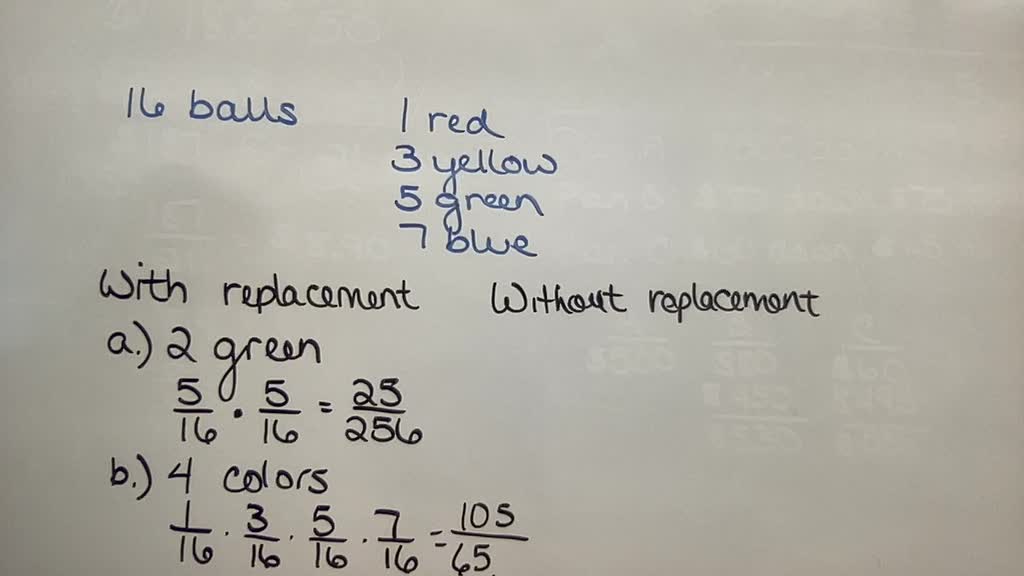 16 balls 1 red
3 yellow
5 green
7 blue
With replacement Without replacement
a.) 2 green
5/16 · 5/16 = 25/256
b.) 4 colors
1/16 · 3/16 · 5/16 · 7/16 = 105/65